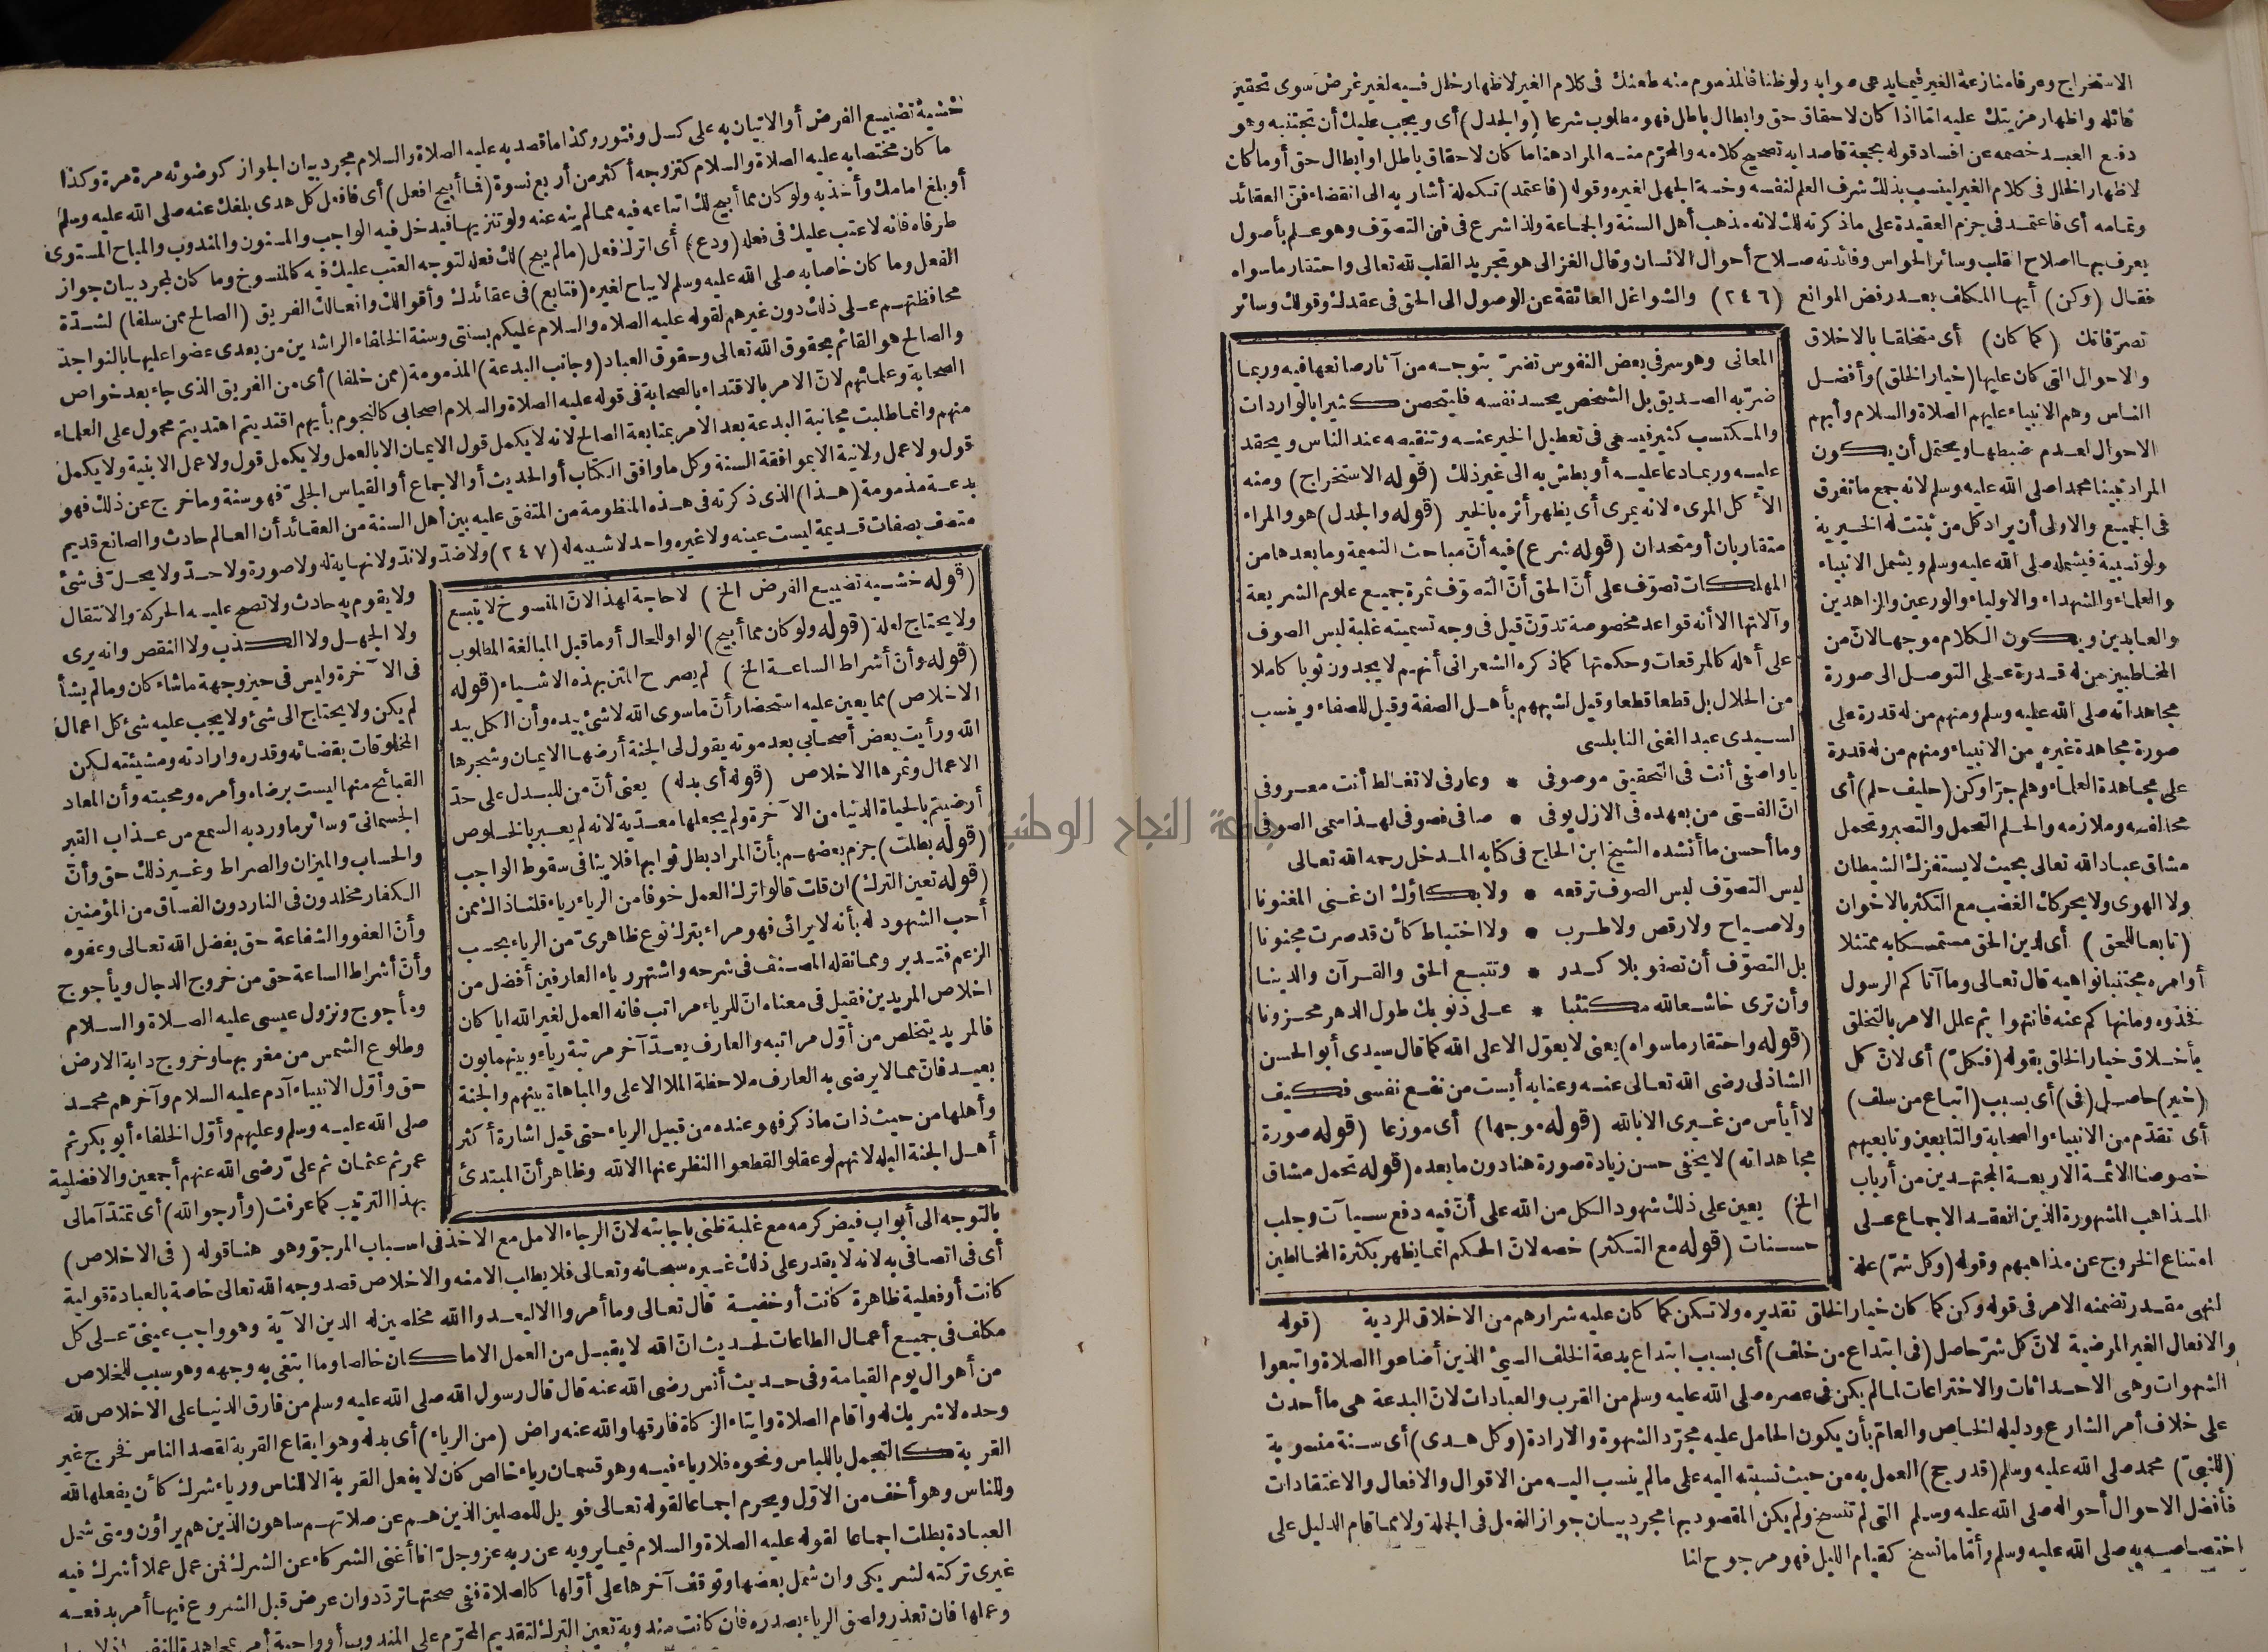 الاستخراج وعرفا منازعة الغير فيما يدعى صوابه ولو ظنا فالمذموم منه طعنك فى كلام الغير لاظهار خلل فيه لغير غرض سوى تحقير
قائله واظهار مزيتك عليه امّا اذا كان لاحقاق حق وابطال باطل فهو مطلوب شرعا (والجدل) أى ويجب عليك أن تجتنبه وهو
دفع العبد خصمه عن افساد قوله بحجة قاصدا به تصحيح كلامه والمحرّم منه المراد هنا ما كان لاحقاق باطل أو ابطال حق أو ما كان
لاظهار الخلل فى كلام الغير لينسب بذلك شرف العلم لنفسه وخسة الجهل لغيره وقوله (فاعتمد) تكملة أشار به الى انقضاء فنّ العقائد
وتمامه أى فاعتمد فى جزم العقيدة على ما ذكرته لك لانه مذهب أهل السنة والجماعة ولذا شرع فى فنّ التصوّف وهو علم بأصول
يعرف بها اصلاح القلب وسائر الحواس وفائدته صلاح أحوال الانسان وقال الغزالى هو تجريد القلب لله تعالى واحتقار ما سواه
فقال (وكن) أيها المكلف بعد رفض الموانع (٢٤٦) والشواغل العائقة عن الوصول الى الحق فى عقدك وقولك وسائر
تصرّفاتك (كما كان) أى متخلقا بالاخلاق
والاحوال التى كان عليها (خيار الخلق) وأفضل
الناس وهم الانبياء عليهم الصلاة والسلام وأبهم
الاحوال لعدم ضبطها ويحتمل أن يكون
المراد نبينا محمدا صلى الله عليه وسلم لانه جمع ما تفرق
فى الجميع والاولى أن يراد كل من ثبتت له الخيرية
ولو نسبية فيشمله صلى الله عليه وسلم ويشمل الانبياء
والعلماء والشهداء والاولياء والورعين والزاهدين
والعابدين ويكون الكلام موجها لان من
المخاطبين من له قدرة على التوصل الى صورة
مجاهداته صلى الله عليه وسلم ومنهم من له قدرة على
صورة مجاهدة غيره من الانبياء ومنهم من له قدرة
على مجاهدة العلماء وهلم جرّا وكن (حليف حلم) أى
محالفه وملازمه والحلم التحمل والتصبر وتحمل
مشاق عباد الله تعالى بحيث لا يستفزك الشيطان
ولا الهوى ولا يحركك الغضب مع التكثر بالاخوان
(تابعا للحق) أى لدين الحق متمسكا به ممتثلا
أوامره مجتنبا نواهيه قال تعالى وما آتاكم الرسول
فخذوه وما نهاكم عنه فانتهوا ثم علل الامر بالتخلق
بأخلاق خيار الخلق بقوله (فكلّ) أى لانّ كل
(خير) حاصل (فى) أى بسبب (اتباع من سلف)
أى تقدّم من الانبياء والصحابة والتابعين وتابعيهم
خصوصا الائمة الاربعة المجتهدين من أرباب
المذاهب المشهورة الذين انعقد الاجماع على
امتناع الخروج عن مذاهبهم وقوله (وكل شرّ) علة
المعانى وهو سر فى بعض النفوس تضرّ بتوجه من آثار صانعها فيه وربما
ضرّ به الصديق بل الشخص يحسد نفسه فليتحصن كثيرا بالواردات
والمكتسب كثير فيسعى فى تعطيل الخير عنه وتنقيصه عند الناس ويحقد
عليه وربما دعا عليه أو بطش به الى غير ذلك (قوله الاستخراج) ومنه
الأكل المرىء لانه يمرى أى يظهر أثره بالخير (قوله والجدل) هو والمراء
متقاربان أو متحدان (قوله شرع) فيه أنّ مباحث النميمة وما بعدها من
المهلكات تصوّف على أنّ الحق أنّ التصوّف ثمرة جميع علوم الشريعة
وآلاتها الا أنه قواعد مخصوصة تدوّن قيل فى وجه تسميته غلبة لبس الصوف
على أهله كالمرقعات وحكمتها كما ذكره الشعرانى أنهم لا يجدون ثوبا كاملا
من الحلال بل قطعا قطعا وقيل لشبههم بأهل الصفة وقيل للصفاء وينسب
لسيدى عبد الغنى النابلسى
يا واصفى أنت فى التحقيق موصوفى * وعارفى لا تغالط أنت معروفى
انّ الفتى من بعهده فى الازل يوفى * صافى فصوفى لهذا سمى الصوفى
وما أحسن ما أنشده الشيخ ابن الحاج فى كتابه المدخل رحمه الله تعالى
ليس التصوّف لبس الصوف ترقعه * ولا بكاؤك ان غنى المغنونا
ولا صياح ولا رقص ولا طرب * ولا اختباط كأن قد صرت مجنونا
بل التصوّف أن تصفو بلا كدر * وتتبع الحق والقرآن والدينا
وأن ترى خاشعا لله مكتئبا * على ذنوبك طول الدهر محزونا
(قوله واحتقار ما سواه) يعنى لا يعوّل الا على الله كما قال سيدى أبو الحسن
الشاذلى رضى الله تعالى عنه وعنا به أيست من نفع نفسى فكيف
لا أيأس من غيرى الا بالله (قوله موجها) أى موزعا (قوله صورة
مجاهداته) لا يخفى حسن زيادة صورة هنا دون ما بعده (قوله تحمل مشاق
الخ) يعين على ذلك شهود الكل من الله على أنّ فيه دفع سيآت وجلب
حسنات (قوله مع التكثر) خصه لانّ الحكم انما يظهر بكثرة المخالطين
لنهى مقدر تضمنه الامر فى قوله وكن كما كان خيار الخلق تقديره ولا تكن كما كان عليه شرارهم من الاخلاق الردية (قوله
والافعال الغير المرضية لانّ كل شرّ حاصل (فى ابتداع من خلف) أى بسبب ابتداع بدعة الخلف السيئ الذين أضاعوا الصلاة واتبعوا
الشهوات وهى الاحداثات والاختراعات لما لم يكن فى عصره صلى الله عليه وسلم من القرب والعبادات لانّ البدعة هى ما أحدث
على خلاف أمر الشارع ودليله الخاص والعامّ بأن يكون الحامل عليه مجرّد الشهوة والارادة (وكل هدى) أى سنة منسوبة
(للنبىّ) محمد صلى الله عليه وسلم (قد رجح) العمل به من حيث نسبته اليه على ما لم ينسب اليه من الاقوال والافعال والاعتقادات
فأفضل الاحوال أحواله صلى الله عليه وسلم التى لم تنسخ ولم يكن المقصود بها مجرد بيان جواز الفعل فى الجملة ولا مما قام الدليل على
اختصاصه به صلى الله عليه وسلم وأمّا ما نسخ كقيام الليل فهو مرجوح لنا
خشية تضييع الفرض أو الاتيان به على كسل وفتور وكذا ما قصد به عليه الصلاة والسلام مجرد بيان الجواز كوضوئه مرة مرة وكذا
ما كان مختصا به عليه الصلاة والسلام كتزوجه أكثر من أربع نسوة (فما أبيح افعل) أى فافعل كل هدى بلغك عنه صلى الله عليه وسلم
أو بلغ امامك وأخذ به ولو كان مما أبيح لك اتباعه فيه مما لم ينه عنه ولو تنزيها فيدخل فيه الواجب والمسنون والمندوب والمباح المستوى
طرفاه فانه لا عتب عليك فى فعله (ودع) أى اترك فعل (ما لم يبح) لك فعله لتوجه العتب عليك فيه كالمنسوخ وما كان لمجرد بيان جواز
الفعل وما كان خاصا به صلى الله عليه وسلم لا يباح لغيره (فتابع) فى عقائدك وأقوالك وافعالك الفريق (الصالح ممن سلفا) لشدّة
محافظتهم على ذلك دون غيرهم لقوله عليه الصلاة والسلام عليكم بسنتى وسنة الخلفاء الراشدين من بعدى عضوا عليها بالنواجذ
والصالح هو القائم بحقوق الله تعالى وحقوق العباد (وجانب البدعة) المذمومة (ممن خلفا) أى من الفريق الذى جاء بعد خواص
الصحابة وعلمائهم لانّ الامر بالاقتداء بالصحابة فى قوله عليه الصلاة والسلام اصحابى كالنجوم بأيهم اقتديتم اهتديتم محمول على العلماء
منهم وانما طلبت مجانبة البدعة بعد الامر بمتابعة الصالح لانه لا يكمل قول الايمان الا بالعمل ولا يكمل قول ولا عمل الا بنية ولا يكمل
قول ولا عمل ولا نية الا بموافقة السنة وكل ما وافق الكتاب أو الحديث أو الاجماع أو القياس الجلىّ فهو سنة وما خرج عن ذلك فهو
بدعة مذمومة (هذا) الذى ذكرته فى هذه المنظومة من المتفق عليه بين أهل السنة من العقائد أن العالم حادث والصانع قديم
متصف بصفات قديمة ليست عينه ولا غيره واحد لا شبيه له (٢٤٧) ولا ضدّ ولا ندّ ولا نهاية له ولا صورة ولا حدّ ولا يحلّ فى شئ
ولا يقوم به حادث ولا تصح عليه الحركة والانتقال
ولا الجهل ولا الكذب ولا النقص وانه يرى
فى الآخرة وليس فى حيز وجهة ما شاء كان وما لم يشأ
لم يكن ولا يحتاج الى شئ ولا يجب عليه شئ كل اعمال
المخلوقات بقضائه وقدره وارادته ومشيئته لكن
القبائح منها ليست برضاه وأمره ومحبته وأن المعاد
الجسمانىّ وسائر ما ورد به السمع من عذاب القبر
والحساب والميزان والصراط وغير ذلك حق وأنّ
الكفار مخلدون فى النار دون الفساق من المؤمنين
وأنّ العفو والشفاعة حق بفضل الله تعالى وعفوه
وأنّ أشراط الساعة حق من خروج الدجال ويأجوج
ومأجوج ونزول عيسى عليه الصلاة والسلام
وطلوع الشمس من مغربها وخروج دابة الارض
حق وأوّل الانبياء آدم عليه السلام وآخرهم محمد
صلى الله عليه وسلم وعليهم وأوّل الخلفاء أبو بكر ثم
عمر ثم عثمان ثم علىّ رضى الله عنهم أجمعين والافضلية
بهذا الترتيب كما عرفت (وأرجو الله) أى تمتدّ آمالى
(قوله خشية تضييع الفرض الخ) لا حاجة لهذا لانّ المنسوخ لا يتبع
ولا يحتاج لعلة (قوله ولو كان مما أبيح) الواو للحال أو ما قبل المبالغة المطلوب
(قوله وأنّ أشراط الساعة الخ) لم يصرح المتن بهذه الاشياء (قوله
الاخلاص) مما يعين عليه استحضار أنّ ما سوى الله لا شئ بيده وأن الكل بيد
الله ورأيت بعض أصحابى بعد موته يقول لى الجنة أرضها الايمان وشجرها
الاعمال وثمرها الاخلاص (قوله أى بدله) يعنى أنّ من للبدل على حدّ
أرضيتم بالحياة الدنيا من الآخرة ولم يجعلها معدّية لانه لم يعبر بالخلوص
(قوله بطلت) جزم بعضهم بأنّ المراد بطل ثوابها فلا ينافى سقوط الواجب
(قوله تعين الترك) ان قلت قالوا ترك العمل خوفا من الرياء رياء قلنا ذاك ممن
أحب الشهود له بأنه لا يرائى فهو مراء بترك نوع ظاهرىّ من الرياء بحسب
الزعم فتدبر ومما نقله المصنف فى شرحه واشتهر رياء العارفين أفضل من
اخلاص المريدين فقيل فى معناه انّ للرياء مراتب فانه العمل لغير الله ايا كان
فالمريد يتخلص من أوّل مراتبه والعارف يعدّ آخر مرتبة رياء وبينهما بون
بعيد فان مما لا يرضى به العارف ملاحظة الملا الاعلى والمباهاة بينهم والجنة
وأهلها من حيث ذات ما ذكر فهو عنده من قبيل الرياء حتى قيل اشارة أكثر
أهل الجنة البله لانهم لو عقلوا لقطعوا النظر عنها الا لله وظاهر أنّ المبتدئ
بالتوجه الى أبواب فيض كرمه مع غلبة ظنى باجابته لانّ الرجاء الامل مع الاخذ فى اسباب المرجوّ وهو هنا قوله (فى الاخلاص)
أى فى اتصافى به لانه لا يقدر على ذلك غيره سبحانه وتعالى فلا يطلب الا منه والاخلاص قصد وجه الله تعالى خاصة بالعبادة قولية
كانت أو فعلية ظاهرة كانت أو خفية قال تعالى وما أمروا الا ليعبدوا الله مخلصين له الدين الآية وهو واجب عينىّ على كل
مكلف فى جميع أعمال الطاعات لحديث انّ الله لا يقبل من العمل الا ما كان خالصا وما ابتغى به وجهه وهو سبب للخلاص
من أهوال يوم القيامة وفى حديث أنس رضى الله عنه قال قال رسول الله صلى الله عليه وسلم من فارق الدنيا على الاخلاص لله
وحده لا شريك له واقام الصلاة وايتاء الزكاة فارقها والله عنه راض (من الرياء) أى بدله وهو ايقاع القربة لقصد الناس فخرج غير
القربة كالتجمل باللباس ونحوه فلا رياء فيه وهو قسمان رياء خالص كان لا يفعل القربة الا للناس ورياء شرك كأن يفعلها لله
وللناس وهو أخف من الاوّل ويحرم اجماعا لقوله تعالى فويل للمصلين الذين هم عن صلاتهم ساهون الذين هم يراؤن ومتى شمل
العبادة بطلت اجماعا لقوله عليه الصلاة والسلام فيما يرويه عن ربه عز وجلّ انا أغنى الشركاء عن الشرك فمن عمل عملا أشرك فيه
غيرى تركته لشريكى وان شمل بعضها وتوقف آخرها على أوّلها كالصلاة ففى صحتها تردّد وان عرض قبل الشروع فيها أمر بدفعه
وعملها فان تعذر ولصق الرياء بصدره فان كانت مندوبة تعين الترك لتقديم المحرّم على المندوب أو واجبة أمر بمجاهدة النفس
جامعة النجاح الوطنية